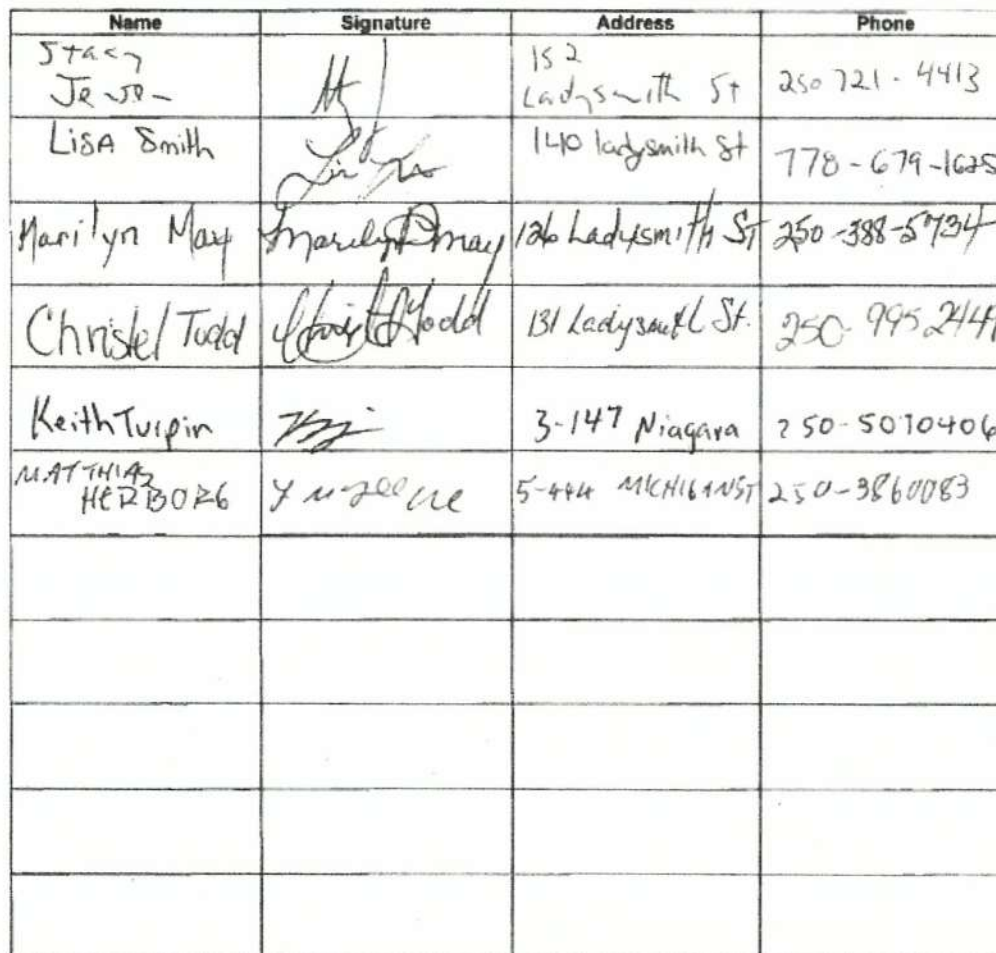 Name Signature Address Phone
Stacy 152
Ladysmith St 250 721-4413
Lisa Smith 140 ladysmith St 778-679-1625
Marilyn May Marilyn P May 126 Ladysmith ST 250-388-5734
Christel Todd Christel Todd 131 Ladysmith St. 250-995-2441
Keith Turpin 3-147 Niagara 250-5070406
MATTHIAS
HERBORG 5-444 MICHIGAN ST 250-3860083